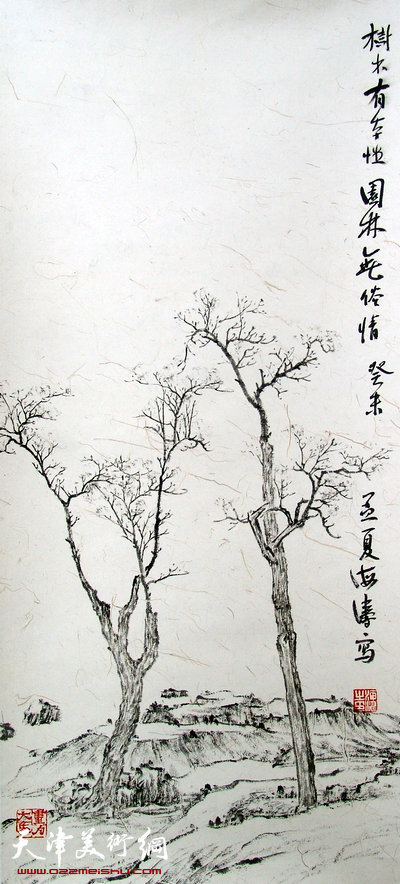 樹木有本性園林無俗情癸未孟夏海濤写
天津美術網
www.022meishu.com